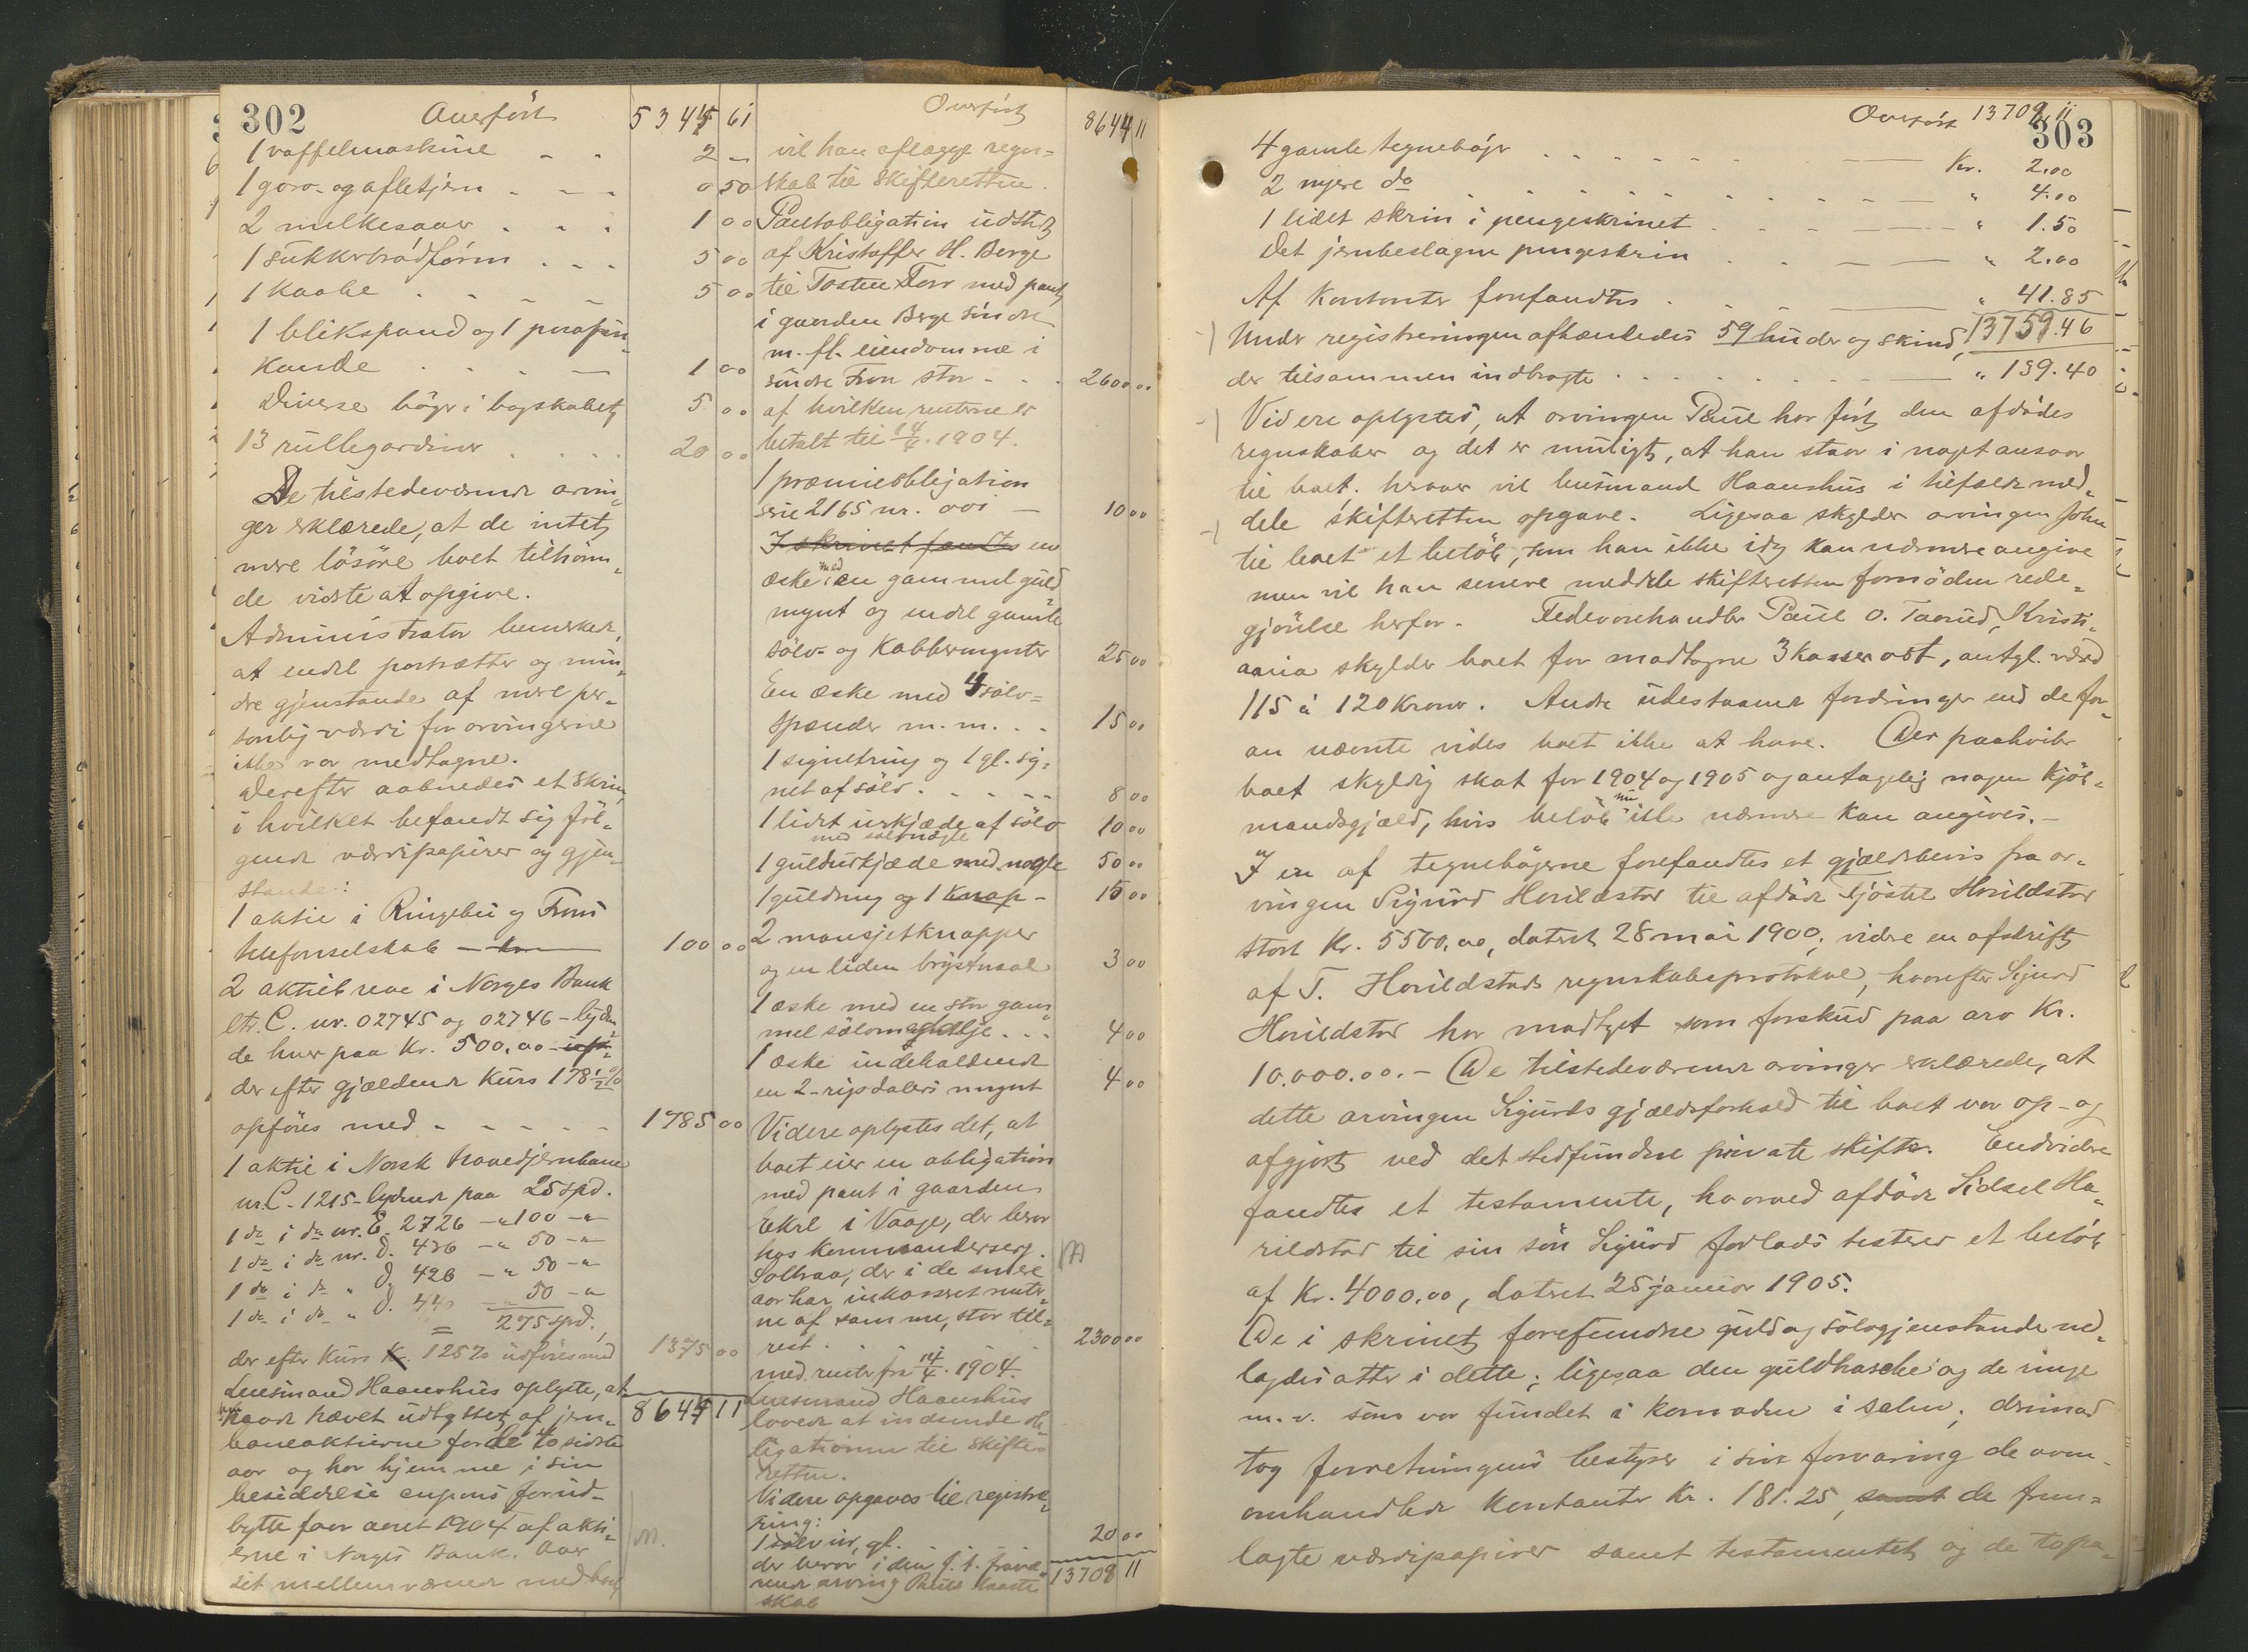 302
Overført 5344 61
1 vaffelmaskine - - 2 -
1 goro- og afletjern - - - 0 50
2 melkesaaer . . . 1 00
1 sukkerbrødform . - - 5 00
1 kaabe . . - - 5 00
1 blikspand og 1 parafin-
kande . . . - 1 00
Diverse bøger i bogskabet 5 00
13 rullegardiner . . . . 20 00
De tilstedeværende arvin-
ger erklærede, at de intet
mere løsøre boet tilhøren-
de vidste at opgive.
Administrator bemerkede,
at endel portrætter og min-
dre gjenstande af mere per-
sonlig værdi for arvingerne
ikke var medtagne.
Derefter aabnedes et skrin,
i hvilket befandt sig føl-
gende værdipapirer og gjen-
stande:
1 aktie i Ringebu og Frons
telefonselskab - 100 00
2 aktiebreve i Norges Bank
ltr. C. nr. 02745 og 02746 - lyden-
de hver paa Kr. 500.00
der efter gjældende kurs 178 1/2 %
opføres med - - - - - 1785 00
1 aktie i Norsk hovedjernbane
nr. C. 1215 - lydende paa 25 spd.
1 do i do nr. E. 2726 - " 100 - "
1 do i do nr. D. 436 - " 50 - "
1 do i do " D. 426 - " 50 - "
1 do i do " D. 440 - " 50 - "
= 275 spd.,
der efter kurs 125 % udføres med 1375 00
Lensmand Haanshus oplyste, at
han havde hævet udbyttet af jern- 8644 11
baneaktierne for de to sidste
aar og har hjemme i sin
besiddelse cupons for ud-
bytte for aaret 1904 af akti-
erne i Norges Bank. Over M.
sit mellemværende med boet
Overført 8644 11
vil han aflægge regn-
skab til skifteretten.
Pantobligation udstedt
af Kristoffer H. Berge
til Tosten Forr med pant
i gaarden Berge søndre
m. fl. eiendomme i
søndre Fron stor - . . 2600 00
af hvilken renterne er
betalt til 14/4. 1904.
1 præmieobligation
serie 2165 nr. 001 - 10 00
I skrinet fandtes en
æske med en gammel guld
mynt og endel gamle
sølv- og kobbermynter 25 00
En æske med 4 sølv-
spænder m. m. . - 15 00
1 signetring og 1 gl. sig-
net af sølv . - - - - 8 00
1 lidet urkjæde af sølv 10 00
med sølvnøgle
1 guldurkjæde med nøgle 50 00
1 guldring og 1 knap - 15 00
2 mansjetknapper
og en liden brystnaal 3 00
1 æske med en stor gam-
mel sølvmedalje . - - 4 00
1 æske indeholdende
en 2-rigsdalers mynt 4 00
Videre oplystes det, at
boet eier en obligation
med pant i gaarden
Ekre i Vaage, der beror
hos kommandersergt. M
Solhaa, der i de senere
aar har inkasseret renter-
ne af samme, stor til-
rest . . . . 2300 00
med renter fra 14/4. 1904.
Lensmand Haanshus
lovede at indsende ob-
ligationen til skifte-
retten.
Videre opgaves til registre-
ring:
1 sølvur, gl. . 20 00
der beror i den f. t. fravæ-
rende arving Pauls 13708 11
skab
303
Overført 13708 11
4 gamle tegnebøger . . . . . . . Kr. 2.00
2 nyere do . . . . . . . . . " 4.00
1 lidet skrin i pengeskrinet . . . . " 1.50
Det jernbeslagne pengeskrin . . . " 2.00
Af Kontanter forefandtes . . . " 41.85
Under registreringen afhændedes 59 huder og skind, 13759.46
der tilsammen indbragte . . . . . . " 139.40
Videre oplystes, at arvingen Paul har ført den afdødes
regnskaber og det er muligt, at han staar i noget ansvar
til boet, herover vil lensmand Haanshus i tilfælde med-
dele skifteretten opgave. Ligesaa skylder arvingen John
til boet et beløb, som han ikke idag kan nærmere angive
men vil han senere meddele skifteretten fornøden rede-
gjørelse herfor. Fedevarehandler Paul O. Taarud, Kristi-
ania skylder boet for modtagne 3 kasser ost, antgl. værd
115 à 120 kroner. Andre udestaaende fordringer end de for-
an nævnte vides boet ikke at have. Der paahviler
boet skyldig skat for 1904 og 1905 og antagelig nogen kjøb-
mandsgjæld, hvis beløb nu ikke nærmere kan angives. -
I en af tegnebøgerne forefandtes et gjældsbevis fra ar-
vingen Sigurd Horildstad til afdøde Tjøstel Horildstad
stort Kr. 5500.00, dateret 28 mai 1900; videre en afskrift
af T. Horildstads regnskabsprotokol, hvorefter Sigurd
Horildstad har modtaget som forskud paa arv Kr.
10.000.00. - De tilstedeværende arvinger erklærede, at
dette arvingen Sigurds gjældsforhold til boet var op- og
afgjort ved det stedfundne private skifte. Endvidere
fandtes et testamente, hvorved afdøde Sidsel Ho-
rildstad til sin søn Sigurd forlods testerer et beløb
af Kr. 4000.00, dateret 25 januar 1905.
De i skrinet forefundne guld og sølvgjenstande ned-
lagdes atter i dette; ligesaa den guldbrosche og de ringe
m. v. som var fundet i komoden i salen; derimod
tog forretningens bestyrer i sin forvaring de oven-
omhandlede kontanter Kr. 181.25, samt de frem-
lagte værdipapirer samt testamentet og de to pa-